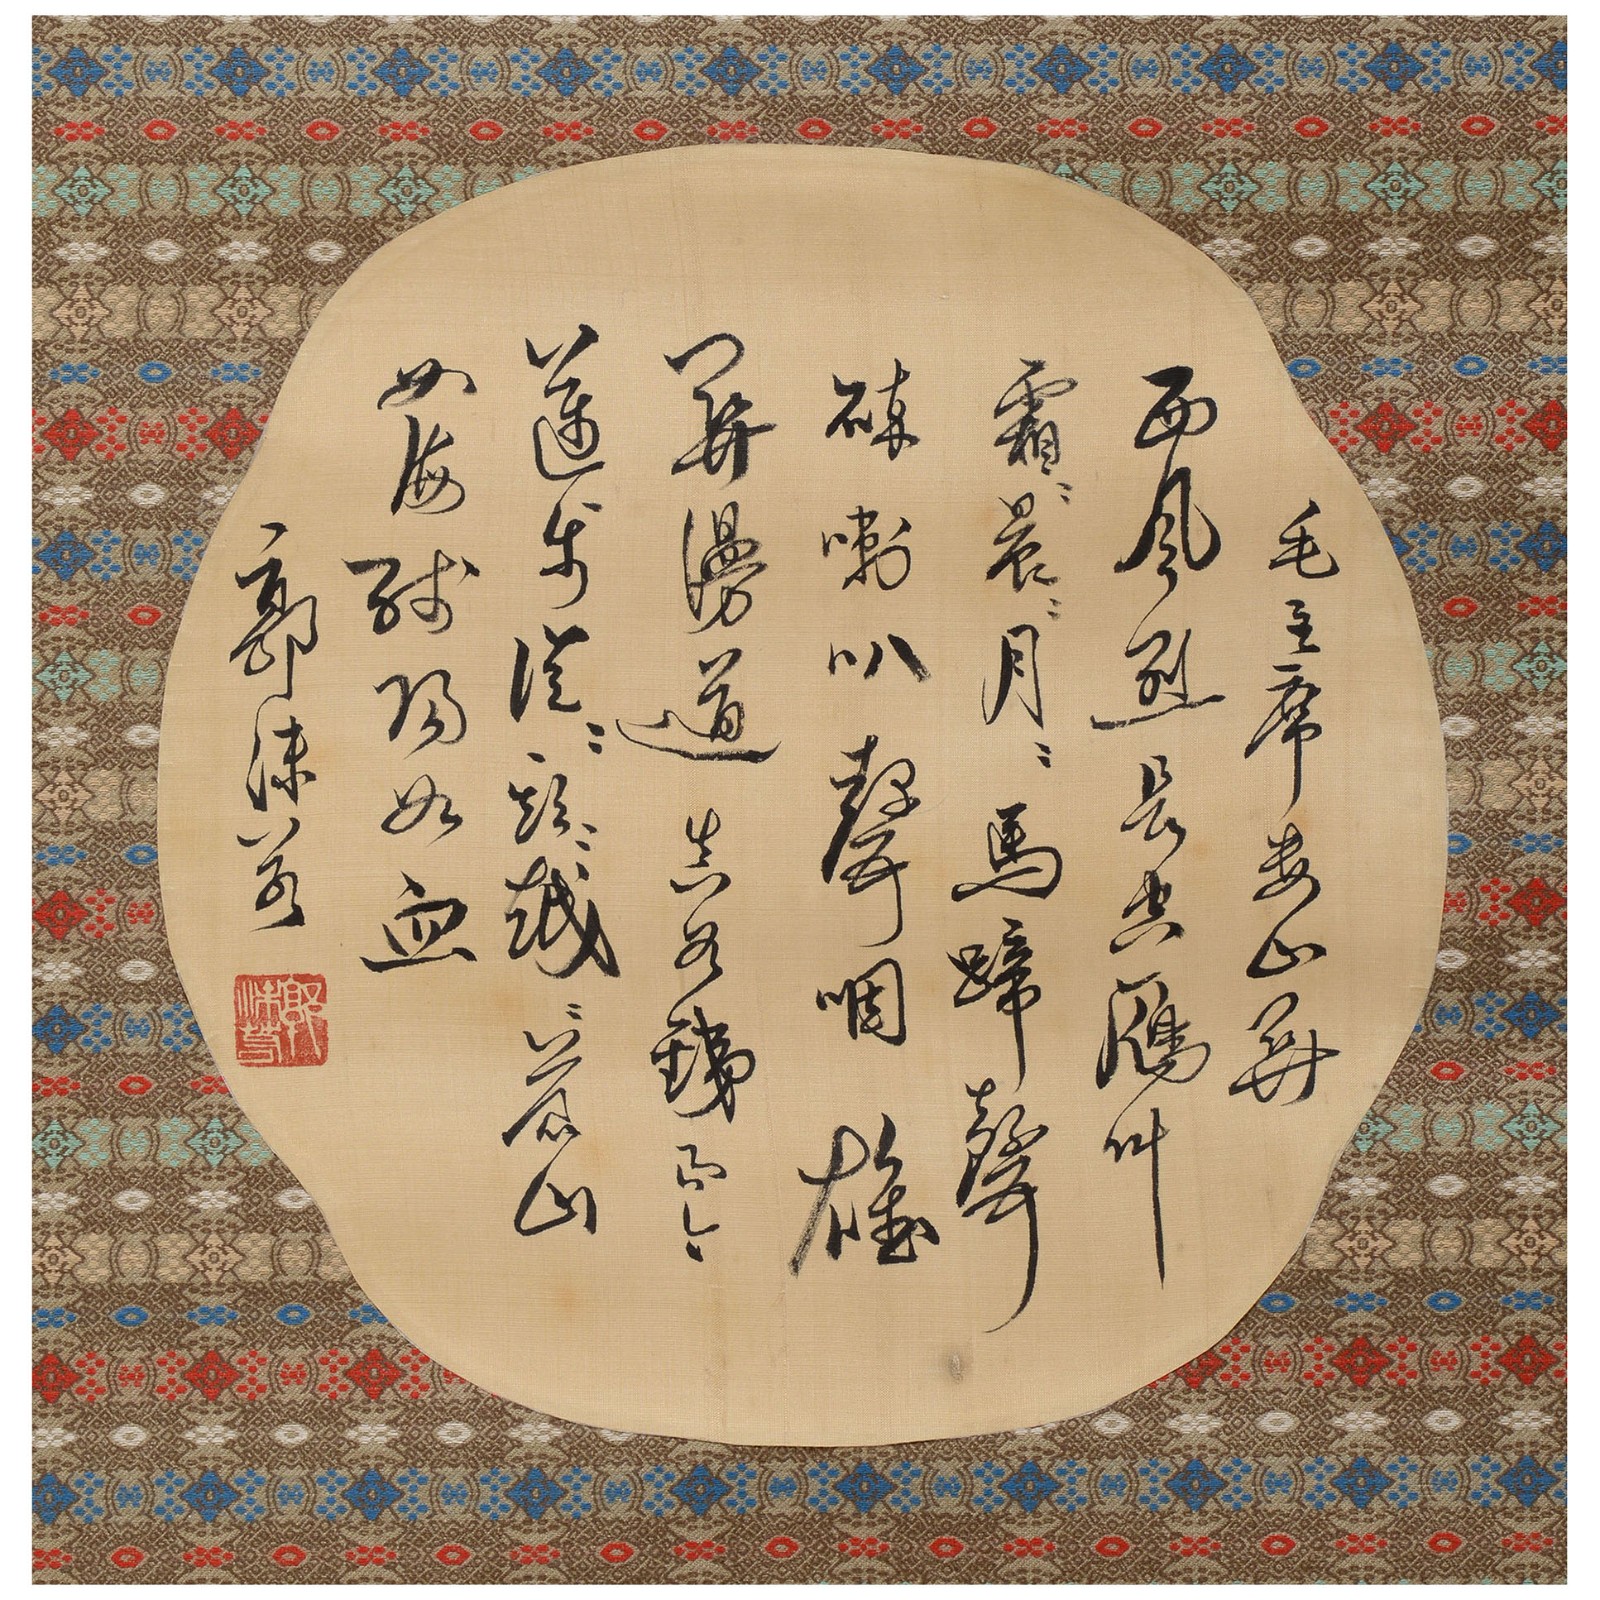 毛主席婁山關
西風烈長空鴈叫
霜〻晨〻月〻馬蹄聲
碎喇叭聲咽雄
關漫道真如鐵而今
邁步從〻頭〻越〻蒼山
如海殘陽如血
郭沫若
郭沫若